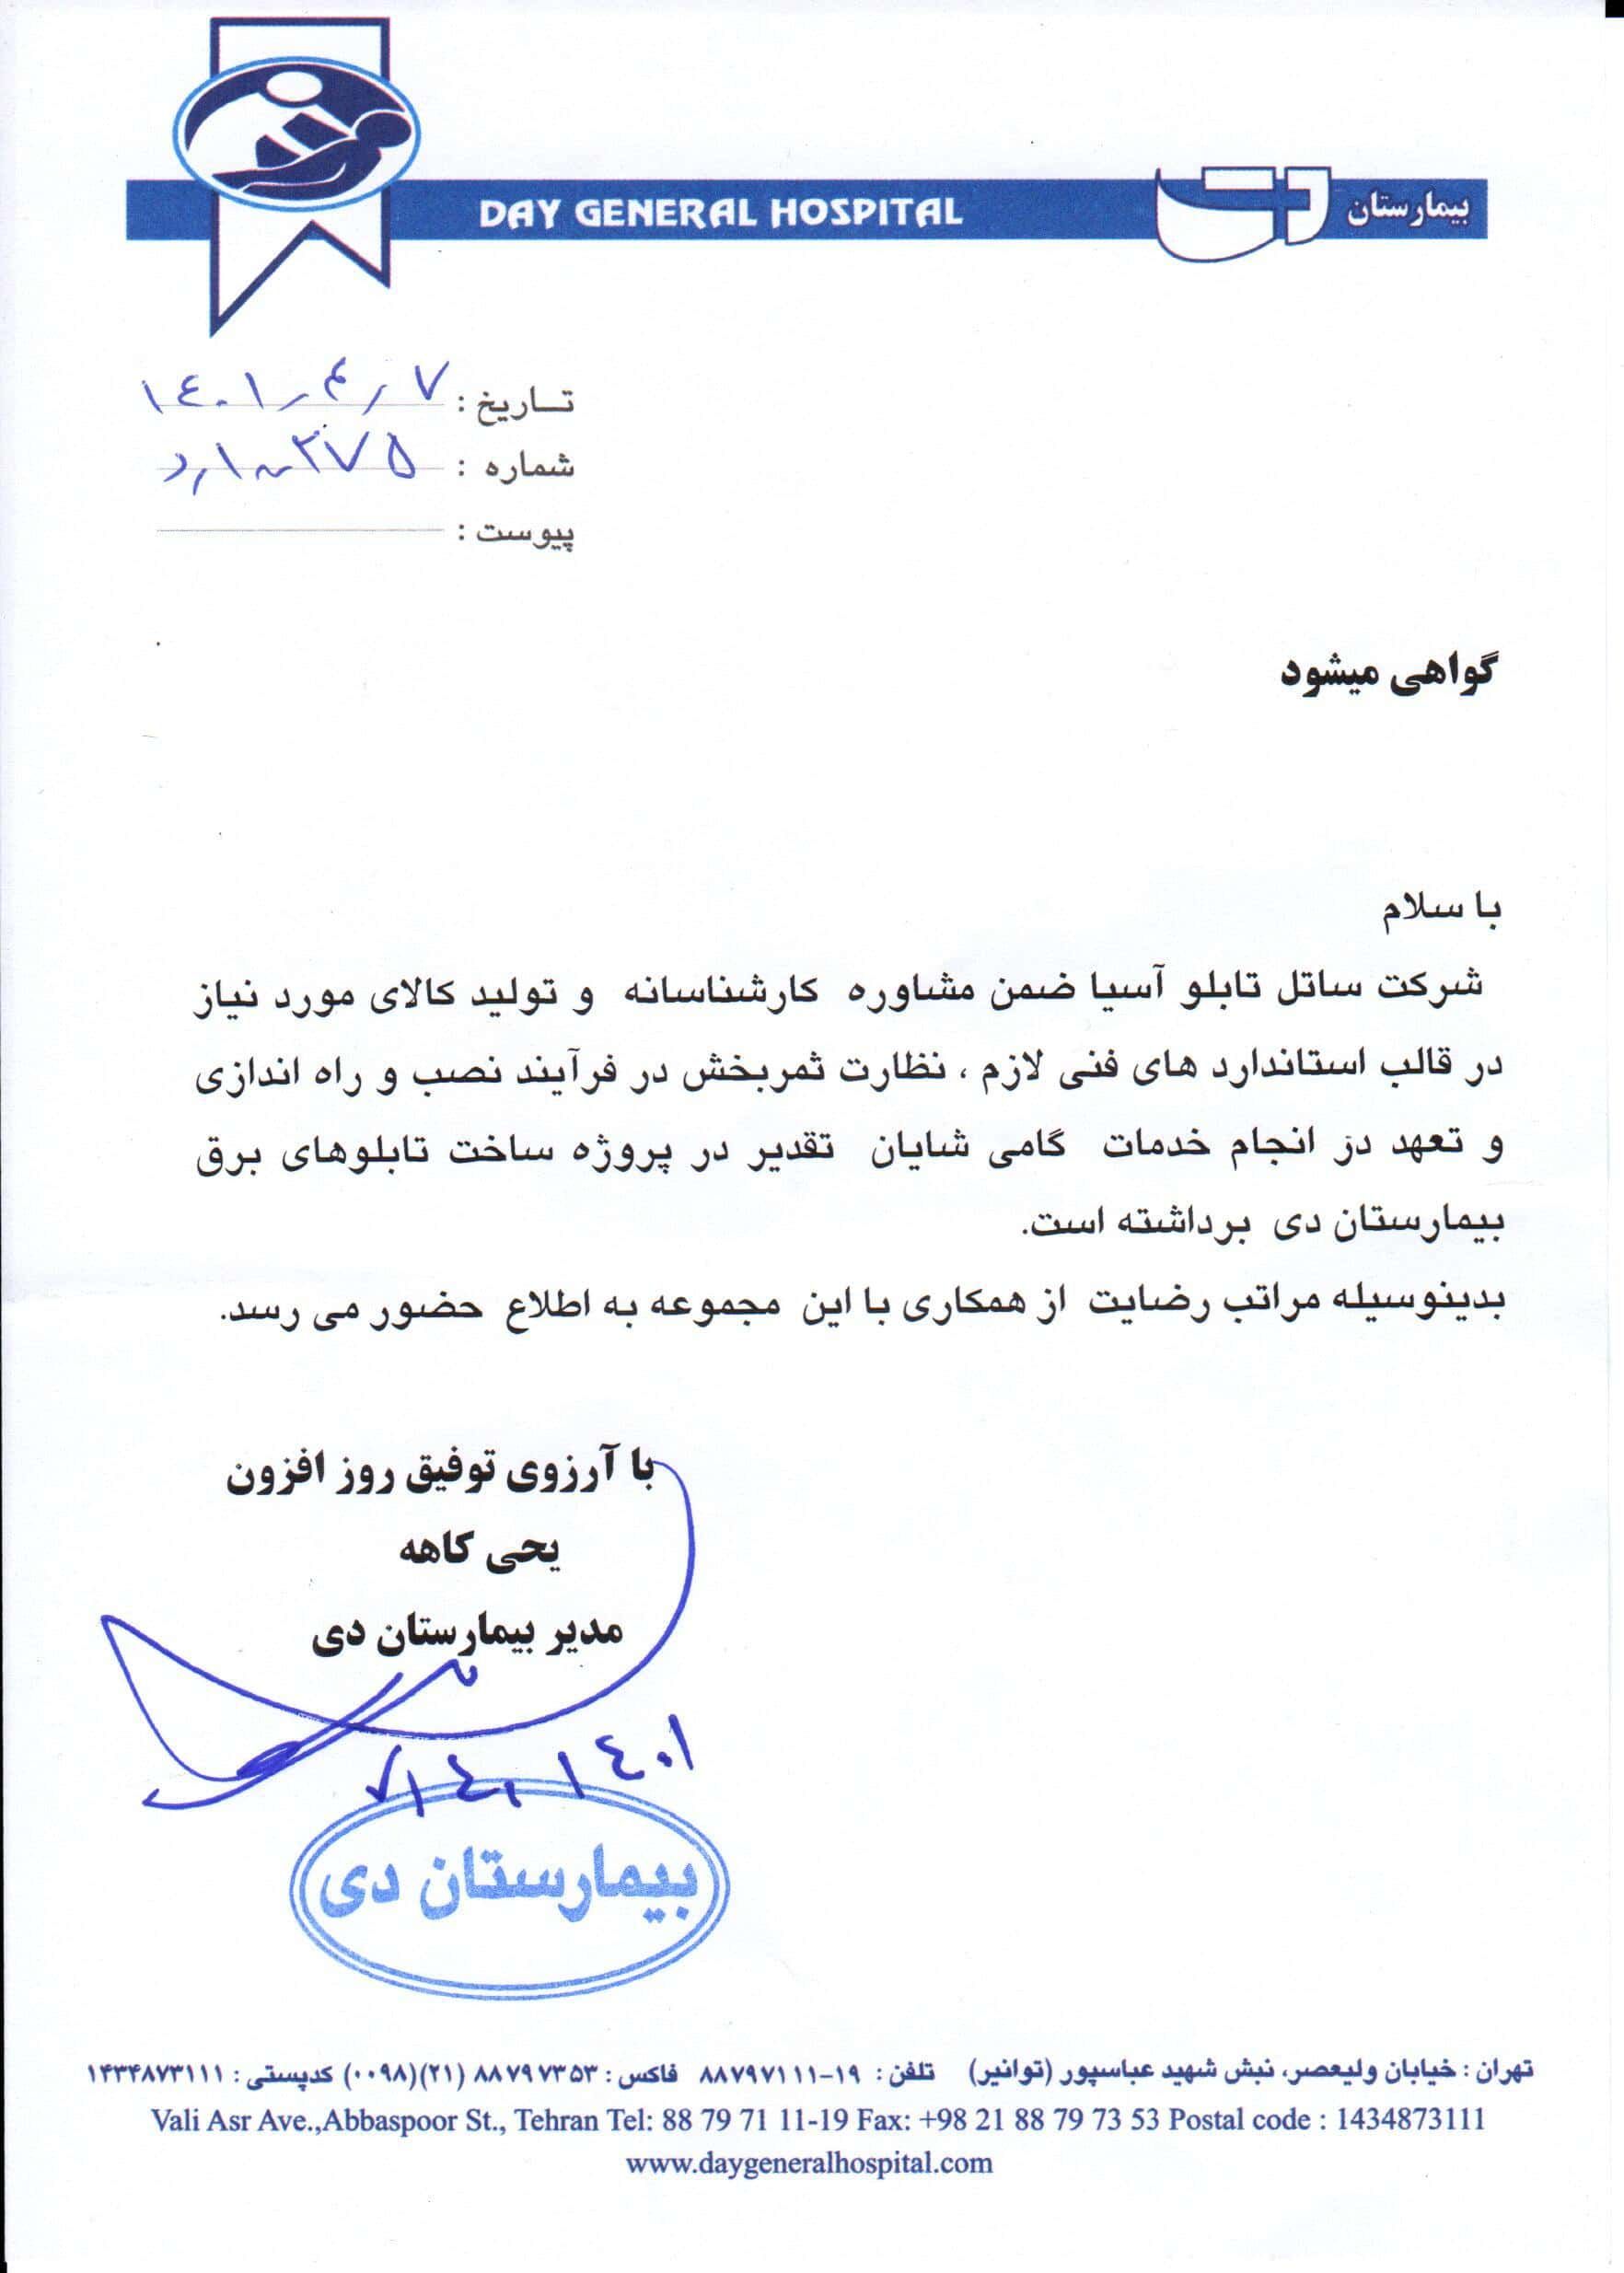 DAY GENERAL HOSPITAL
بیمارستان دی
تاریخ : ۱۴۰۱٫۴٫۷
شماره :
پیوست :
گواهی میشود
با سلام
شرکت ساتل تابلو آسیا ضمن مشاوره کارشناسانه و تولید کالای مورد نیاز
در قالب استاندارد های فنی لازم ، نظارت ثمربخش در فرآیند نصب و راه اندازی
و تعهد در انجام خدمات گامی شایان تقدیر در پروژه ساخت تابلوهای برق
بیمارستان دی برداشته است.
بدینوسیله مراتب رضایت از همکاری با این مجموعه به اطلاع حضور می رسد.
با آرزوی توفیق روز افزون
یحی کاهه
مدیر بیمارستان دی
بیمارستان دی
تهران : خیابان ولیعصر، نبش شهید عباسپور (توانیر) تلفن : ۱۹-۸۸۷۹۷۱۱۱ فاکس : ۸۸۷۹۷۳۵۳ (۲۱)(۰۰۹۸) کدپستی : ۱۴۳۴۸۷۳۱۱۱
Vali Asr Ave.,Abbaspoor St., Tehran Tel: 88 79 71 11-19 Fax: +98 21 88 79 73 53 Postal code : 1434873111
www.daygeneralhospital.com